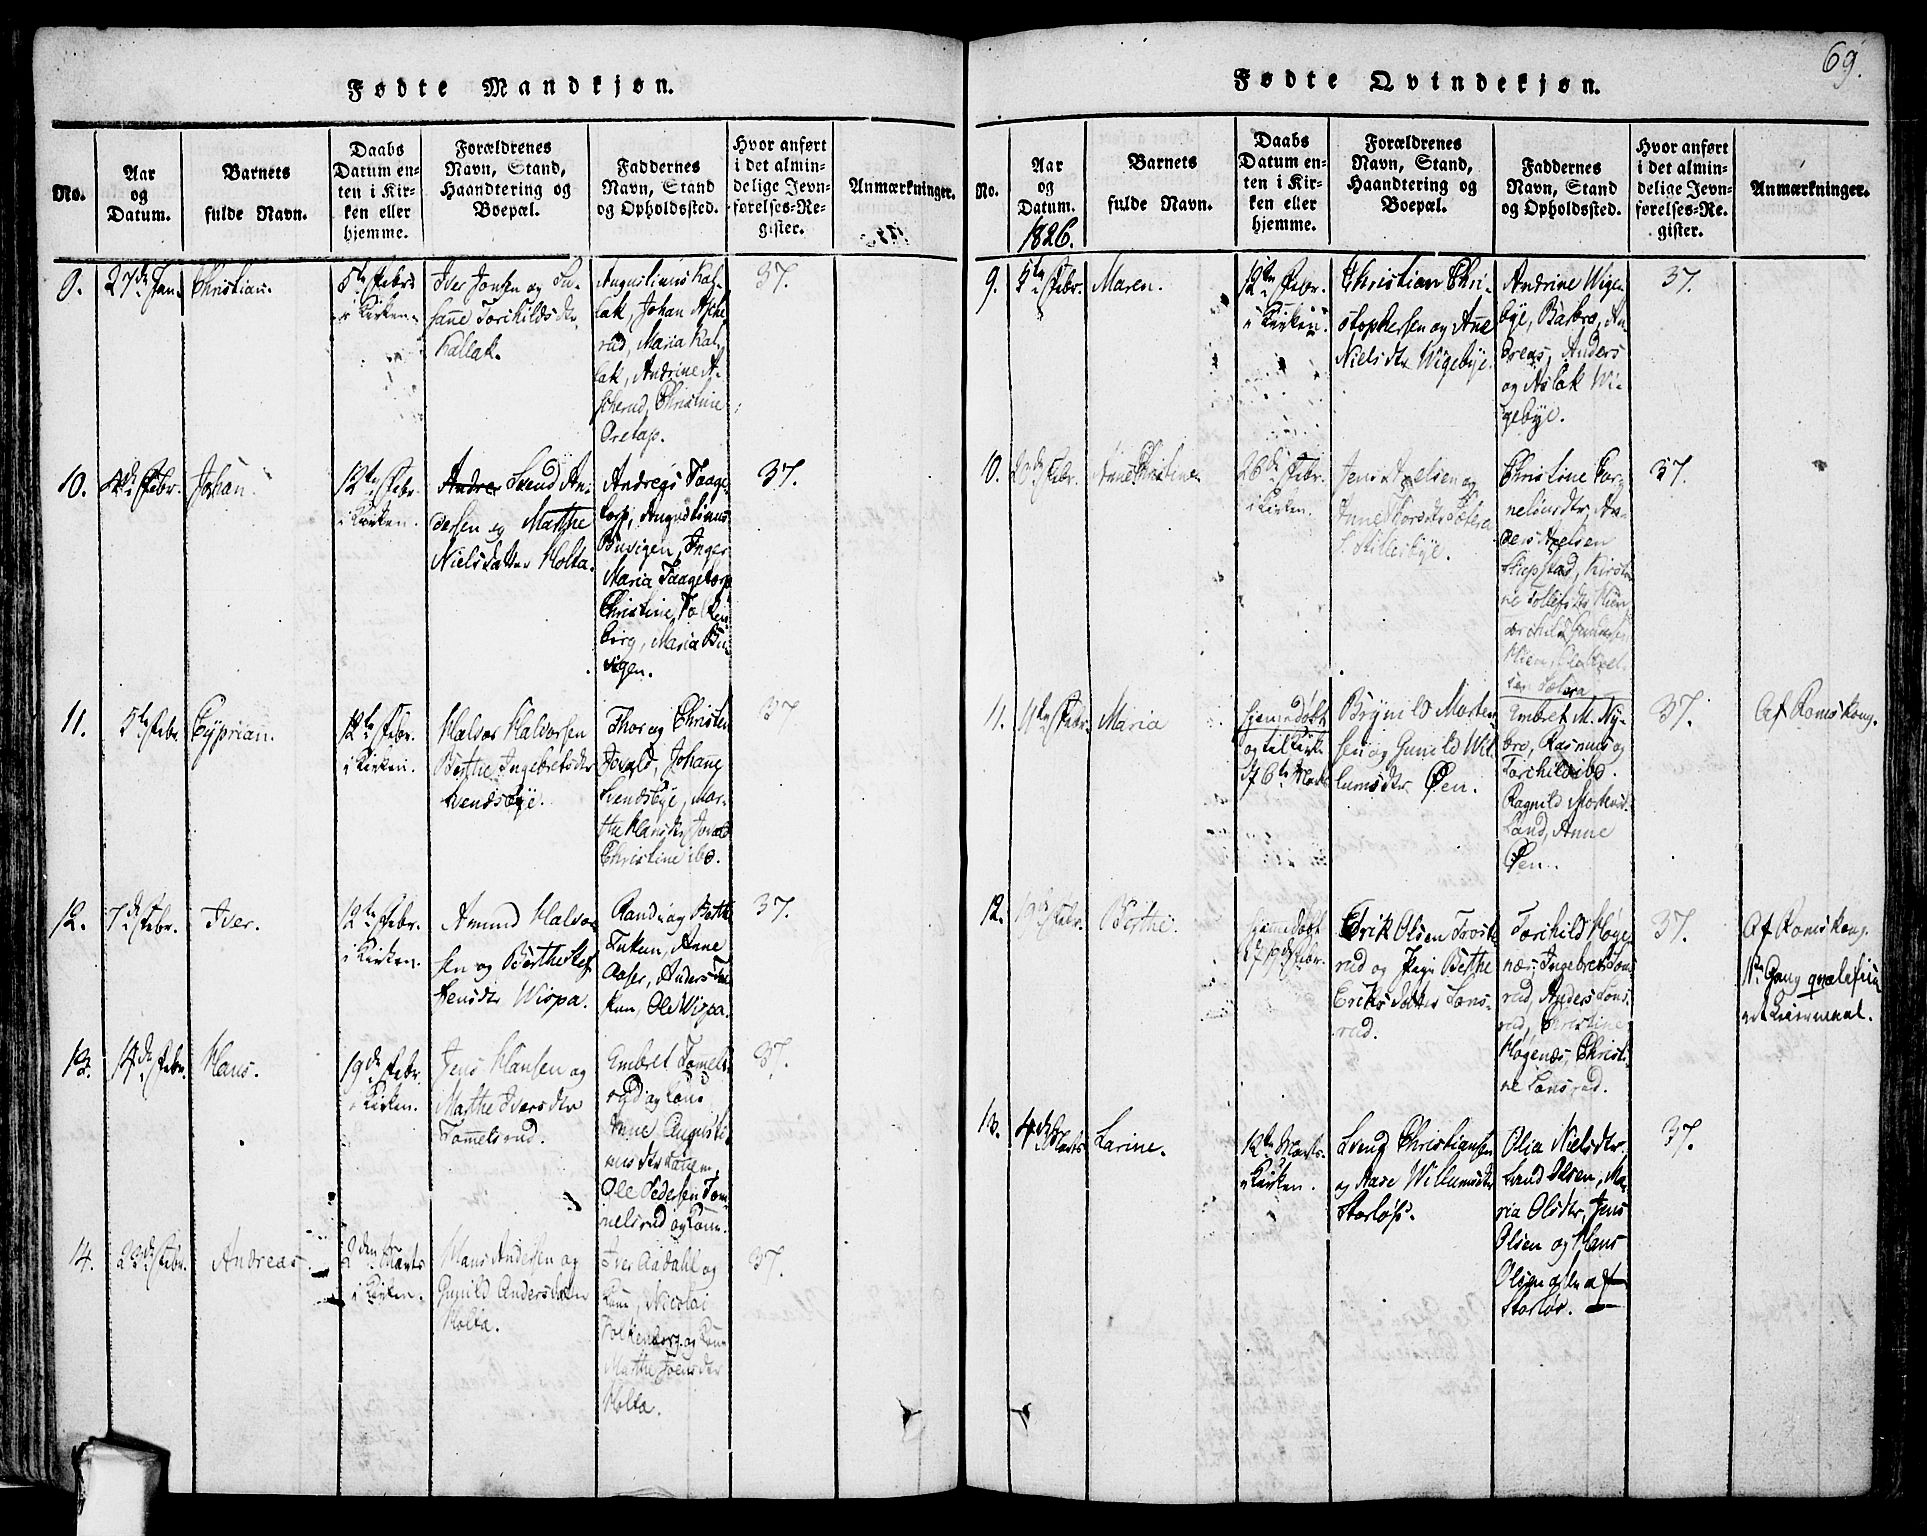 69.
Fødte Mandkjøn.
No.
Aar
og
Datum.
Barnets
fulde Navn.
Daabs
Datum en-
ten i Kir-
ken eller
hjemme.
Forældrenes
Navn, Stand,
Haandtering og
Boepæl.
Faddernes
Navn, Stand
og Opholdssted.
Hvor anført
i det almin-
delige Jevn-
førelses-Re-
gister.
Anmærkninger.
9.
27de Jan.
Christian.
5te Febr.
i Kirken.
Iver Jonsen og Su-
sane Torchildsdtr
Kallak.
Augustinus Kal-
lak, Johan Asche
rud, Maria Kal-
lak, Andrine A-
scherud, Christine
37.
10.
Febr.
Johan.
12te Febr.
i Kirken.
Andre Svend An-
dersen og Marthe
Nielsdatter Holta.
Andreas Taage-
torp, Augustinus
Buvigen, Inger
Maria Taagetorp
Christine Falken
berg, Maria Bu-
vigen.
37.
11.
5te Febr.
Cyprian.
12te Febr.
i Kirken.
Halvor Halvorsen
Berthe Ingebretsdtr
Svendsbye.
Thor og Christen
Jovald, Johane
Svendsbye, Mar-
the Hansdtr Jovald
Christine ibd.
37
12.
7de Febr.
Iver.
12te Febr.
i Kirken.
Amund Halvor
sen og Berthe Stef
fensdtr Wispa.
Randi og Berthe
Tukun, Anne
Aaser, Anders Tu
kun, Ole Wispa.
37.
13.
14de Febr.
Hans.
19de Febr.
i Kirken.
Jens Hansen og
Marthe Iversdtr
Tomelsrud.
Embret Tomels-
rud og Kone
Anne Augusti-
nusdtr
Ole Pedersen Tom
melsrud og Kone.
37.
14.
23de Febr.
Andreas.
2den Marts
i Kirken.
Hans Andersen og
Gunild Andersdatter
Holta.
Iver Aadahl og
Kone, Nicolai
Falkenberg og Kone
Marthe Joensdtr
Holta.
37.
Fødte Qvindekjøn.
No.
Aar
og
Datum.
1826.
Barnets
fulde Navn.
Daabs
Datum en-
ten i Kir-
ken eller
hjemme.
Forældrenes
Navn, Stand,
Haandtering og
Boepæl.
Faddernes
Navn, Stand
og Opholdssted.
Hvor anført
i det almin-
delige Jevn-
førelses-Re-
gister.
Anmærkninger.
9.
5te Febr.
Maren.
12te Febr.
i Kirken.
Christian Chri-
stophersen og Ane
Nielsdtr Wigebye.
Andrine Wige-
bye, Barbro, An-
dreas, Anders
og Aslak Wi-
gebye.
37.
10.
Febr.
Anne Christine
26de Febr.
i Kirken.
Jens Axelsen og
Christine Cor-
neliusdtr, An-
ders Axelsen
37.
11.
11te Febr.
Maria
hjemmedøbt
og til Kirke
d 6te Marts
Brynild Morten
sen og Gunild Wil
lumsdtr Øen.
Embret M. Ny-
bro, Rasmus og
Torchild ibd.
Ragnild Mortensd
Land, Anne
Øen.
37.
Af Romskoug.
12.
19de Febr.
Berthe.
hjemmedøbt
d 19de Febr.
Erik Olsen Troste
rud og Pige Berthe
Eriksdatter Lons-
rud.
Torchild Høge
næs, Ingebret Lons
rud, Anders Lons-
rud, Christine
Høgenæs, Christi-
ne Lonsrud.
37.
Af Romskoug.
1te Gang qvalefice
ret Leiermaal.
13.
4de Marts
Larine.
12te Marts.
i Kirken.
Svend Christiansen
og Aase Willumsdtr
Storløs.
Olia Nielsdtr
Svend Olsen, Ma-
ria Olsdtr, Jens
Olsen og Hans
Olsen alle af
Storløs.
37.